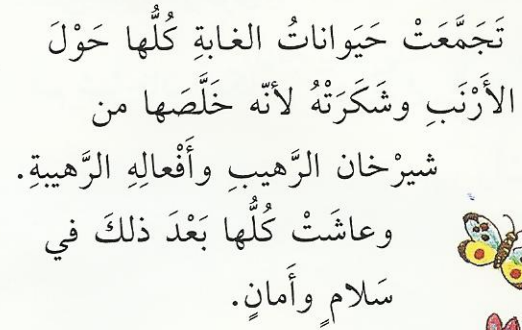 تَجَمَّعَتْ حَيَواناتُ الغابةِ كُلُّها حَوْلَ
الأَرْنَبِ وشَكَرَتْهُ لأنّه خَلَّصَها من
شيرْخان الرَّهيبِ وأَفْعالِهِ الرَّهيبةِ.
وعاشَتْ كُلُّها بَعْدَ ذلكَ في
سَلامٍ وأَمانٍ.